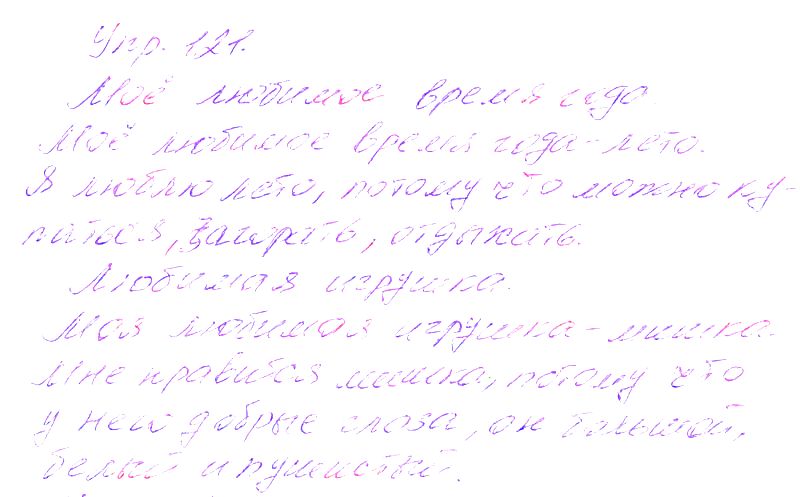 Упр. 121.
Моё любимое время года
Моё любимое время года - лето.
Я люблю лето, потому что можно ку-
паться, загорать, отдыхать.
Любимая игрушка.
Моя любимая игрушка - мишка.
Мне нравится мишка, потому что
у него добрые глаза, он большой,
белый и пушистый.